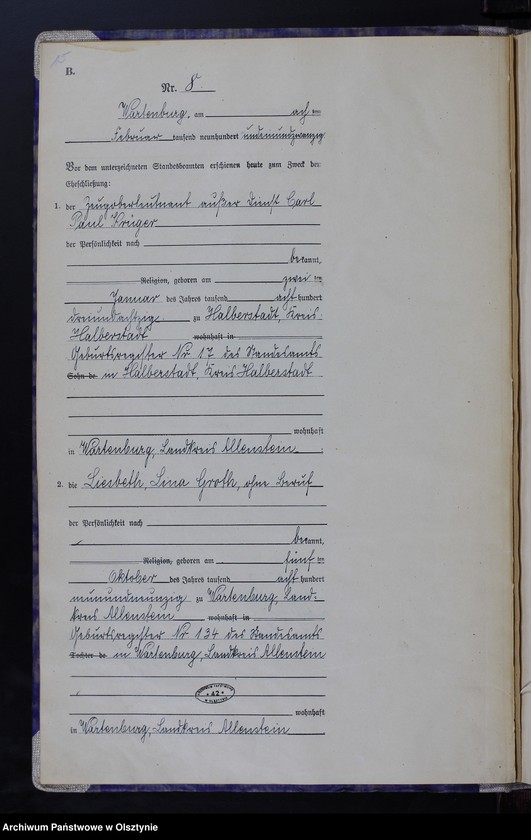 15
B.
Nr. 8.
Wartenburg, am acht ten
Februar tausend neunhundert undeinundzwanzig
Vor dem unterzeichneten Standesbeamten erschienen heute zum Zweck der
Eheschließung:
1. der Zeugoberleutnant außer Dienst Carl
Paul Krüger
der Persönlichkeit nach
bekannt,
Religion, geboren am zwei ten
Januar des Jahres tausend acht hundert
dreiundachtzig zu Halberstadt, Kreis
Halberstadt wohnhaft in
Geburtsregister Nr 17 des Standesamts
Sohn de in Halberstadt, Kreis Halberstadt
wohnhaft
in Wartenburg, Landkreis Allenstein.
2. die Liesbeth, Lina Groth, ohne Beruf
der Persönlichkeit nach
bekannt,
Religion, geboren am fünf ten
Oktober des Jahres tausend acht hundert
neunundneunzig zu Wartenburg, Land-
kreis Allenstein wohnhaft in
Geburtsregister Nr 134 des Standesamts
Tochter de in Wartenburg, Landkreis Allenstein
* 42 *
wohnhaft
in Wartenburg, Landkreis Allenstein
Archiwum Państwowe w Olsztynie